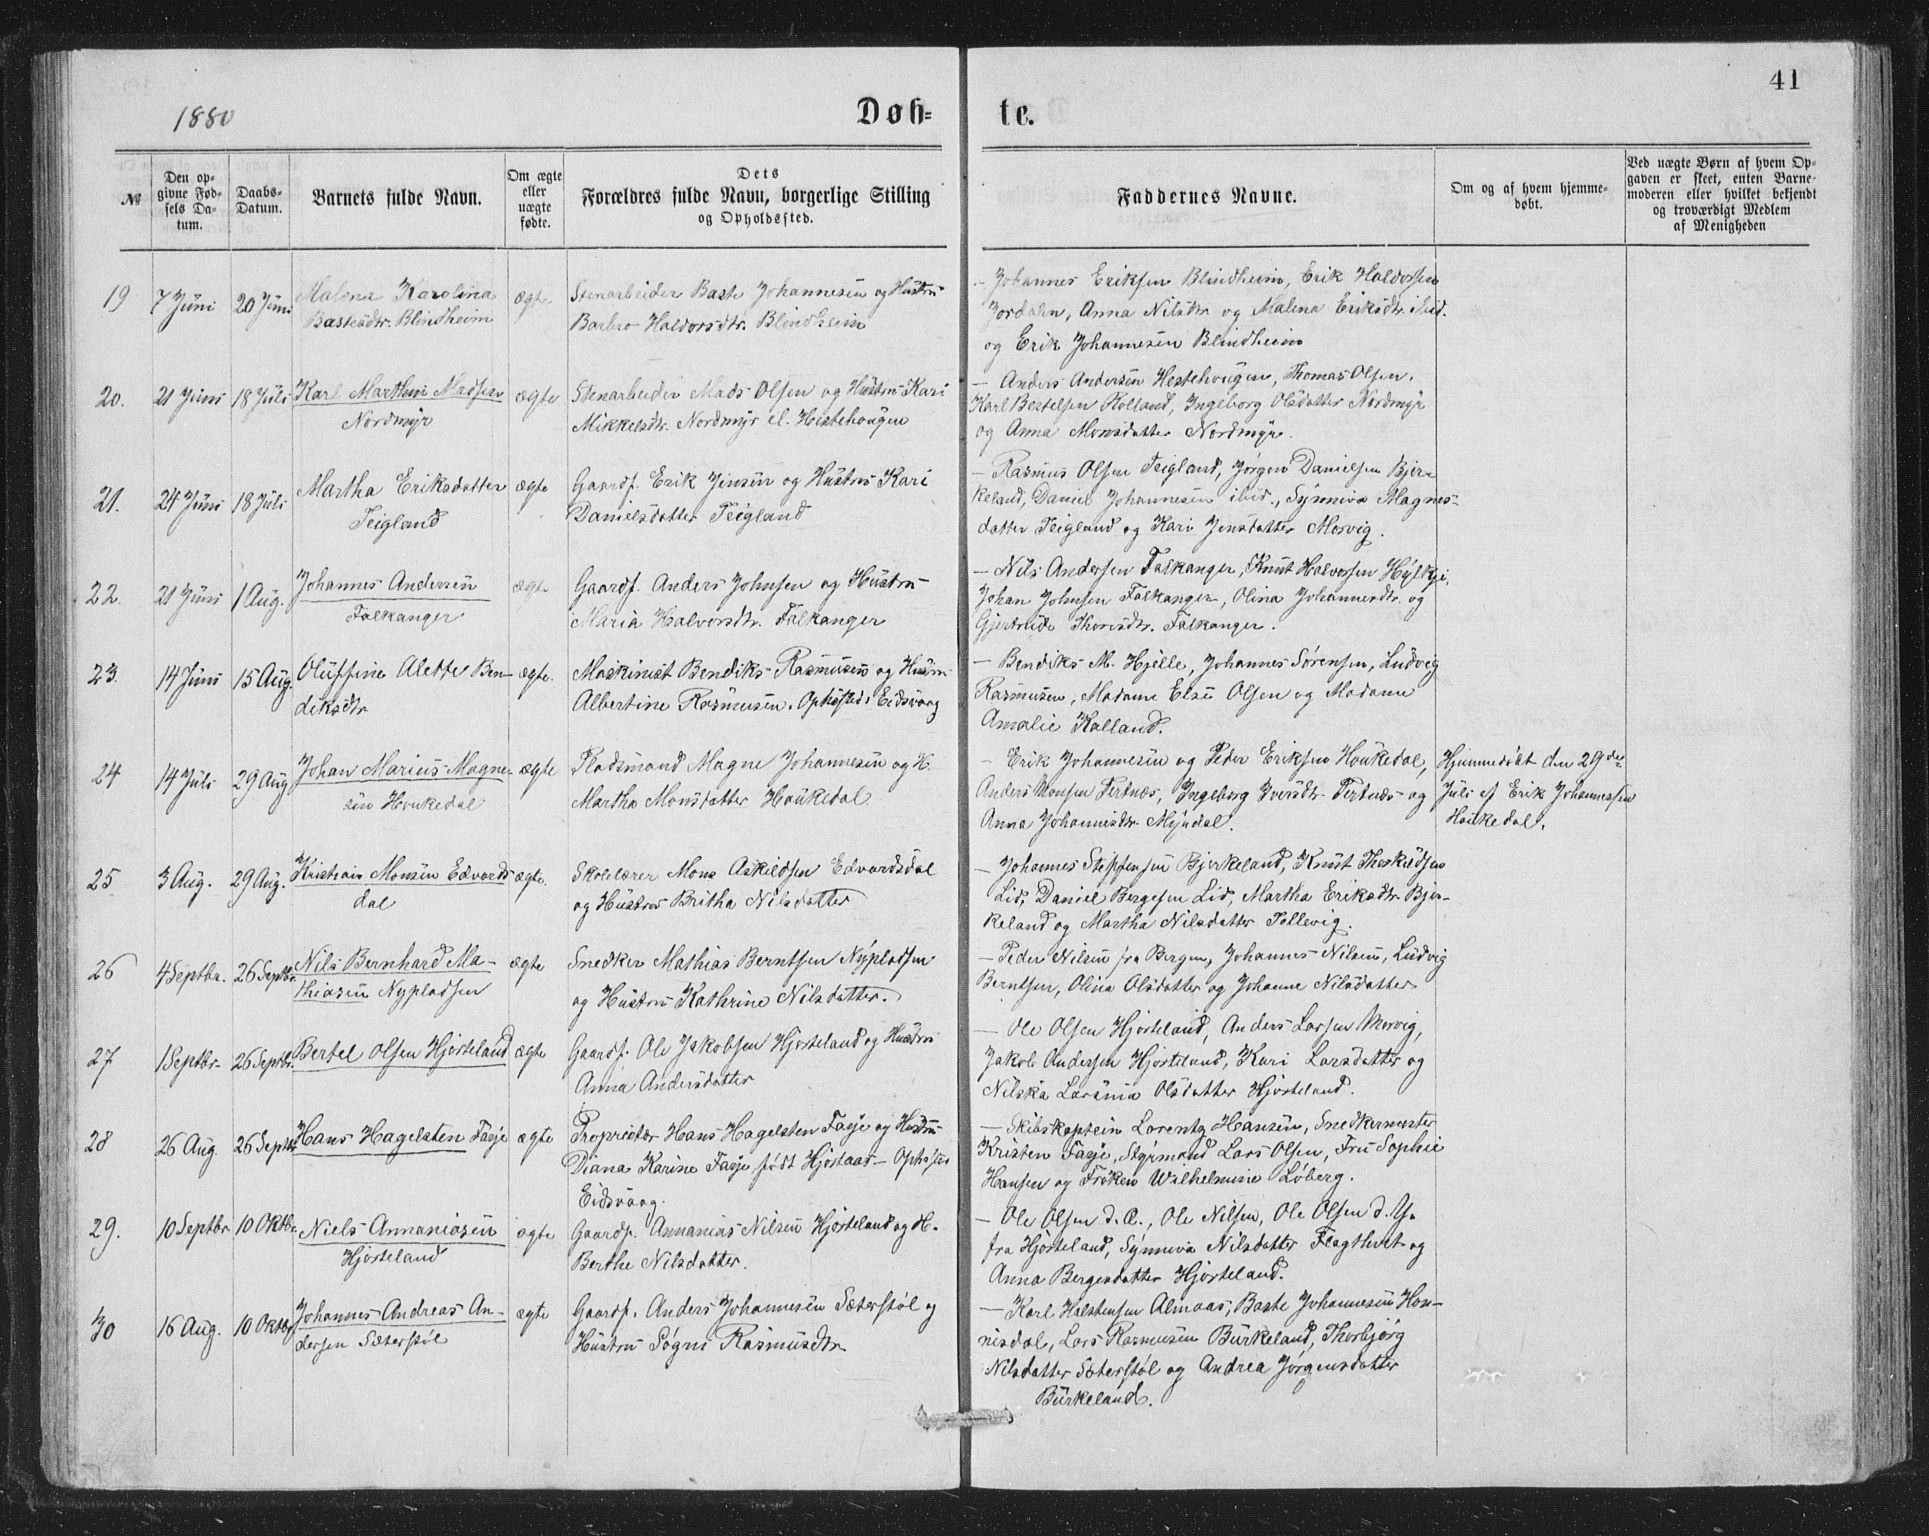 41
1880
Døb-
te.
№
Den op-
givne Fød-
sels Da-
tum.
Daabs-
Datum.
Barnets fulde Navn.
Om ægte
eller
uægte
fødte.
Dets
Forældres fulde Navn, borgerlige Stilling
og Opholdssted.
Faddernes Navne.
Om og af hvem hjemme-
døbt.
Ved uægte Børn af hvem Op-
gaven er skeet, enten Barne-
moderen eller hvilket bekjendt
og troværdigt Medlem
af Menigheden
19
7 Juni
20 Juni
Malena Karolina
Bastesdtr. Blindheim
ægte
Stenarbeider Baste Johannesen og Hustru
Barbro Haldorsdtr. Blindheim
– Johannes Eriksen Blindheim, Erik Haldorsen
Jordalen, Anna Nilsdtr. og Malena Eriksdtr. ibid.
og Erik Johannesen Blindheim
20.
21 Juni
18 Juli
Karl Marthin Madsen
Nordmyr
ægte
Stenarbeider Mads Olsen og Hustru Kari
Mikkelsdtr. Nordmyr el. Hestehougen
– Anders Andersen Hestehougen, Thomas Olsen,
Karl Bertelsen Holland, Ingeborg Olsdatter Nordmyr
og Anna Monsdatter Nordmyr.
21.
24 Juni
18 Juli
Martha Eriksdatter
Teigland
ægte
Gaardf. Erik Jensen og Hustru Kari
Danielsdatter Teigland
– Rasmus Olsen Teigland, Jørgen Danielsen Bjer-
keland, Daniel Johannesen ibid., Synneva Magnes-
datter Teigland og Kari Jensdatter Morvig.
22.
21 Juni
1 Aug.
Johannes Andersen
Falkanger
ægte
Gaardf. Anders Johnsen og Hustru
Maria Halvorsdtr. Falkanger
– Nils Andersen Falkanger, Knut Halvorsen Hylkje,
Johan Johnsen Falkanger, Olina Johannesdtr. og
Gjertrude Thorsdtr. Falkanger.
23.
14 Juni
15 Aug.
Oluffine Alette Ben-
diksdtr
ægte.
Maskinist Bendiks Rasmusen og Hustru
Albertine Rasmusen. Opholdssted: Eidsvaag
– Bendiks M. Hjelle, Johannes Sørensen, Ludvig
Rasmusen, Madame Else Olsen og Madame
Amalie Kalland.
24
14 Juli
29 Aug
Johan Marius Magne-
sen Houkedal
ægte
Pladsmand Magne Johannesen og H.
Martha Monsdatter Houkedal
– Erik Johannesen og Peder Eriksen Houkedal,
Anders Monsen Tertnæs, Ingeborg Iversdtr. Tertnæs og
Anna Johannesdtr. Myrdal.
Hjemmedøbt den 29de
Juli af Erik Johannessen
Houkedal.
25
3 Aug.
29 Aug.
Kristian Monsen Edvards-
dal
ægte.
Skolelærer Mons Askildsen Edvardsdal
og Hustru Britha Nilsdatter
– Johannes Steffensen Bjerkeland, Knut Thorkildsen
Lid, Daniel Bergesen Lid, Martha Eriksdtr. Bjer-
keland og Martha Nilsdatter Tellevig.
26
4 Septbr.
26 Septbr.
Nils Bernhard Ma-
thiasen Nypladsen
ægte
Snedker Mathias Berntsen Nypladsen
og Hustru Kathrine Nilsdatter.
– Peder Nilsen fra Bergen, Johannes Nilsen, Ludvig
Berntsen, Olina Olsdatter og Johanne Nilsdatter
27
1 Septbr.
26 Septbr.
Bertel Olsen Hjorteland
ægte
Gaardf. Ole Jakobsen Hjorteland og Hustru
Anna Andersdatter
– Ole Olsen Hjorteland, Anders Larsen Morvig,
Jakob Andersen Hjorteland, Kari Larsdatter og
Nilska Larsina Olsdatter Hjorteland.
28
26 Aug.
26 Septbr
Hans Hagelsten Fasje
ægte
Proprietær Hans Hagelsten Fasje og Hustru
Diana Karine Fasje født Hjortaas – Opholdssted
Eidsvaag.
– Skibskaptein Lorentz Hansen, Snedkermester
Kristen Fasje, Styrmand Lars Olsen, Fru Sophie
Hansen og Frøken Wilhelmine Løberg.
29.
10 Septbr.
10 Oktbr.
Niels Annaniasen
Hjorteland
ægte
Gaardf. Annanias Nilsen Hjorteland og H.
Berthe Nilsdatter.
– Ole Olsen d. Æ., Ole Nilsen, Ole Olsen d. Y.
fra Hjorteland, Synneva Nilsdatter Flagthvet og
Anna Bergesdatter Hjorteland.
30
16 Aug.
10 Oktbr
Johannes Andreas An-
dersen Sæterstøl
ægte
Gaardf. Anders Johannesen Sæterstøl og
Hustru Søgni Rasmusdtr.
– Karl Halstensen Almaas, Baste Johannesen Hon-
nisdal, Lars Rasmusen Burkeland, Thorbjørg
Nilsdatter Sæterstøl og Andrea Jørgensdatter
Burkeland.